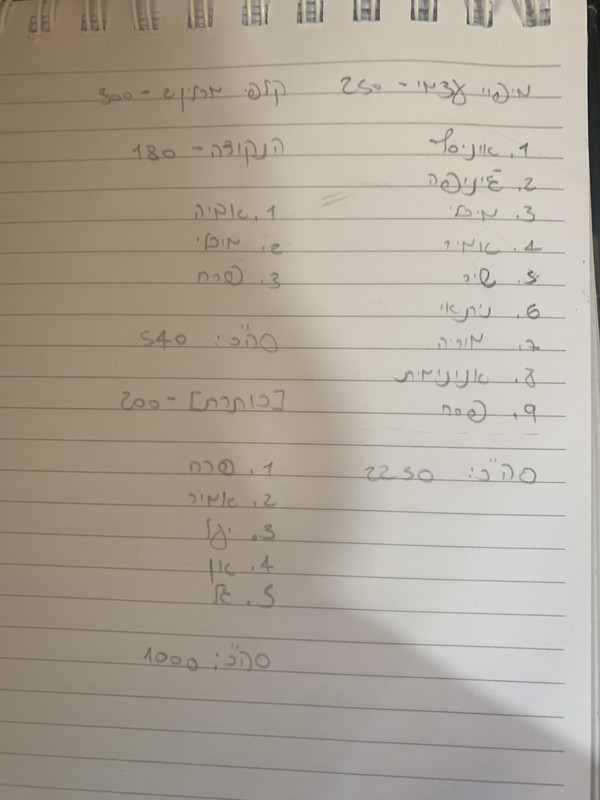 מיפוי עצמי - 250
1. אוניסף
2. ג'ניפה
3. מיכלי
4. אמיר
5. שיר
6. נתאי
7. מוריה
8. אנונימית
9. פסח
סה"כ: 2250
קלפי מרלין - 300
הנקודה - 180
1. אמיה
2. מיכלי
3. פרח
סה"כ: 540
[כותרת] - 200
1. פרח
2. אמיר
3. יעל
4. און
5. גל
סה"כ: 1000